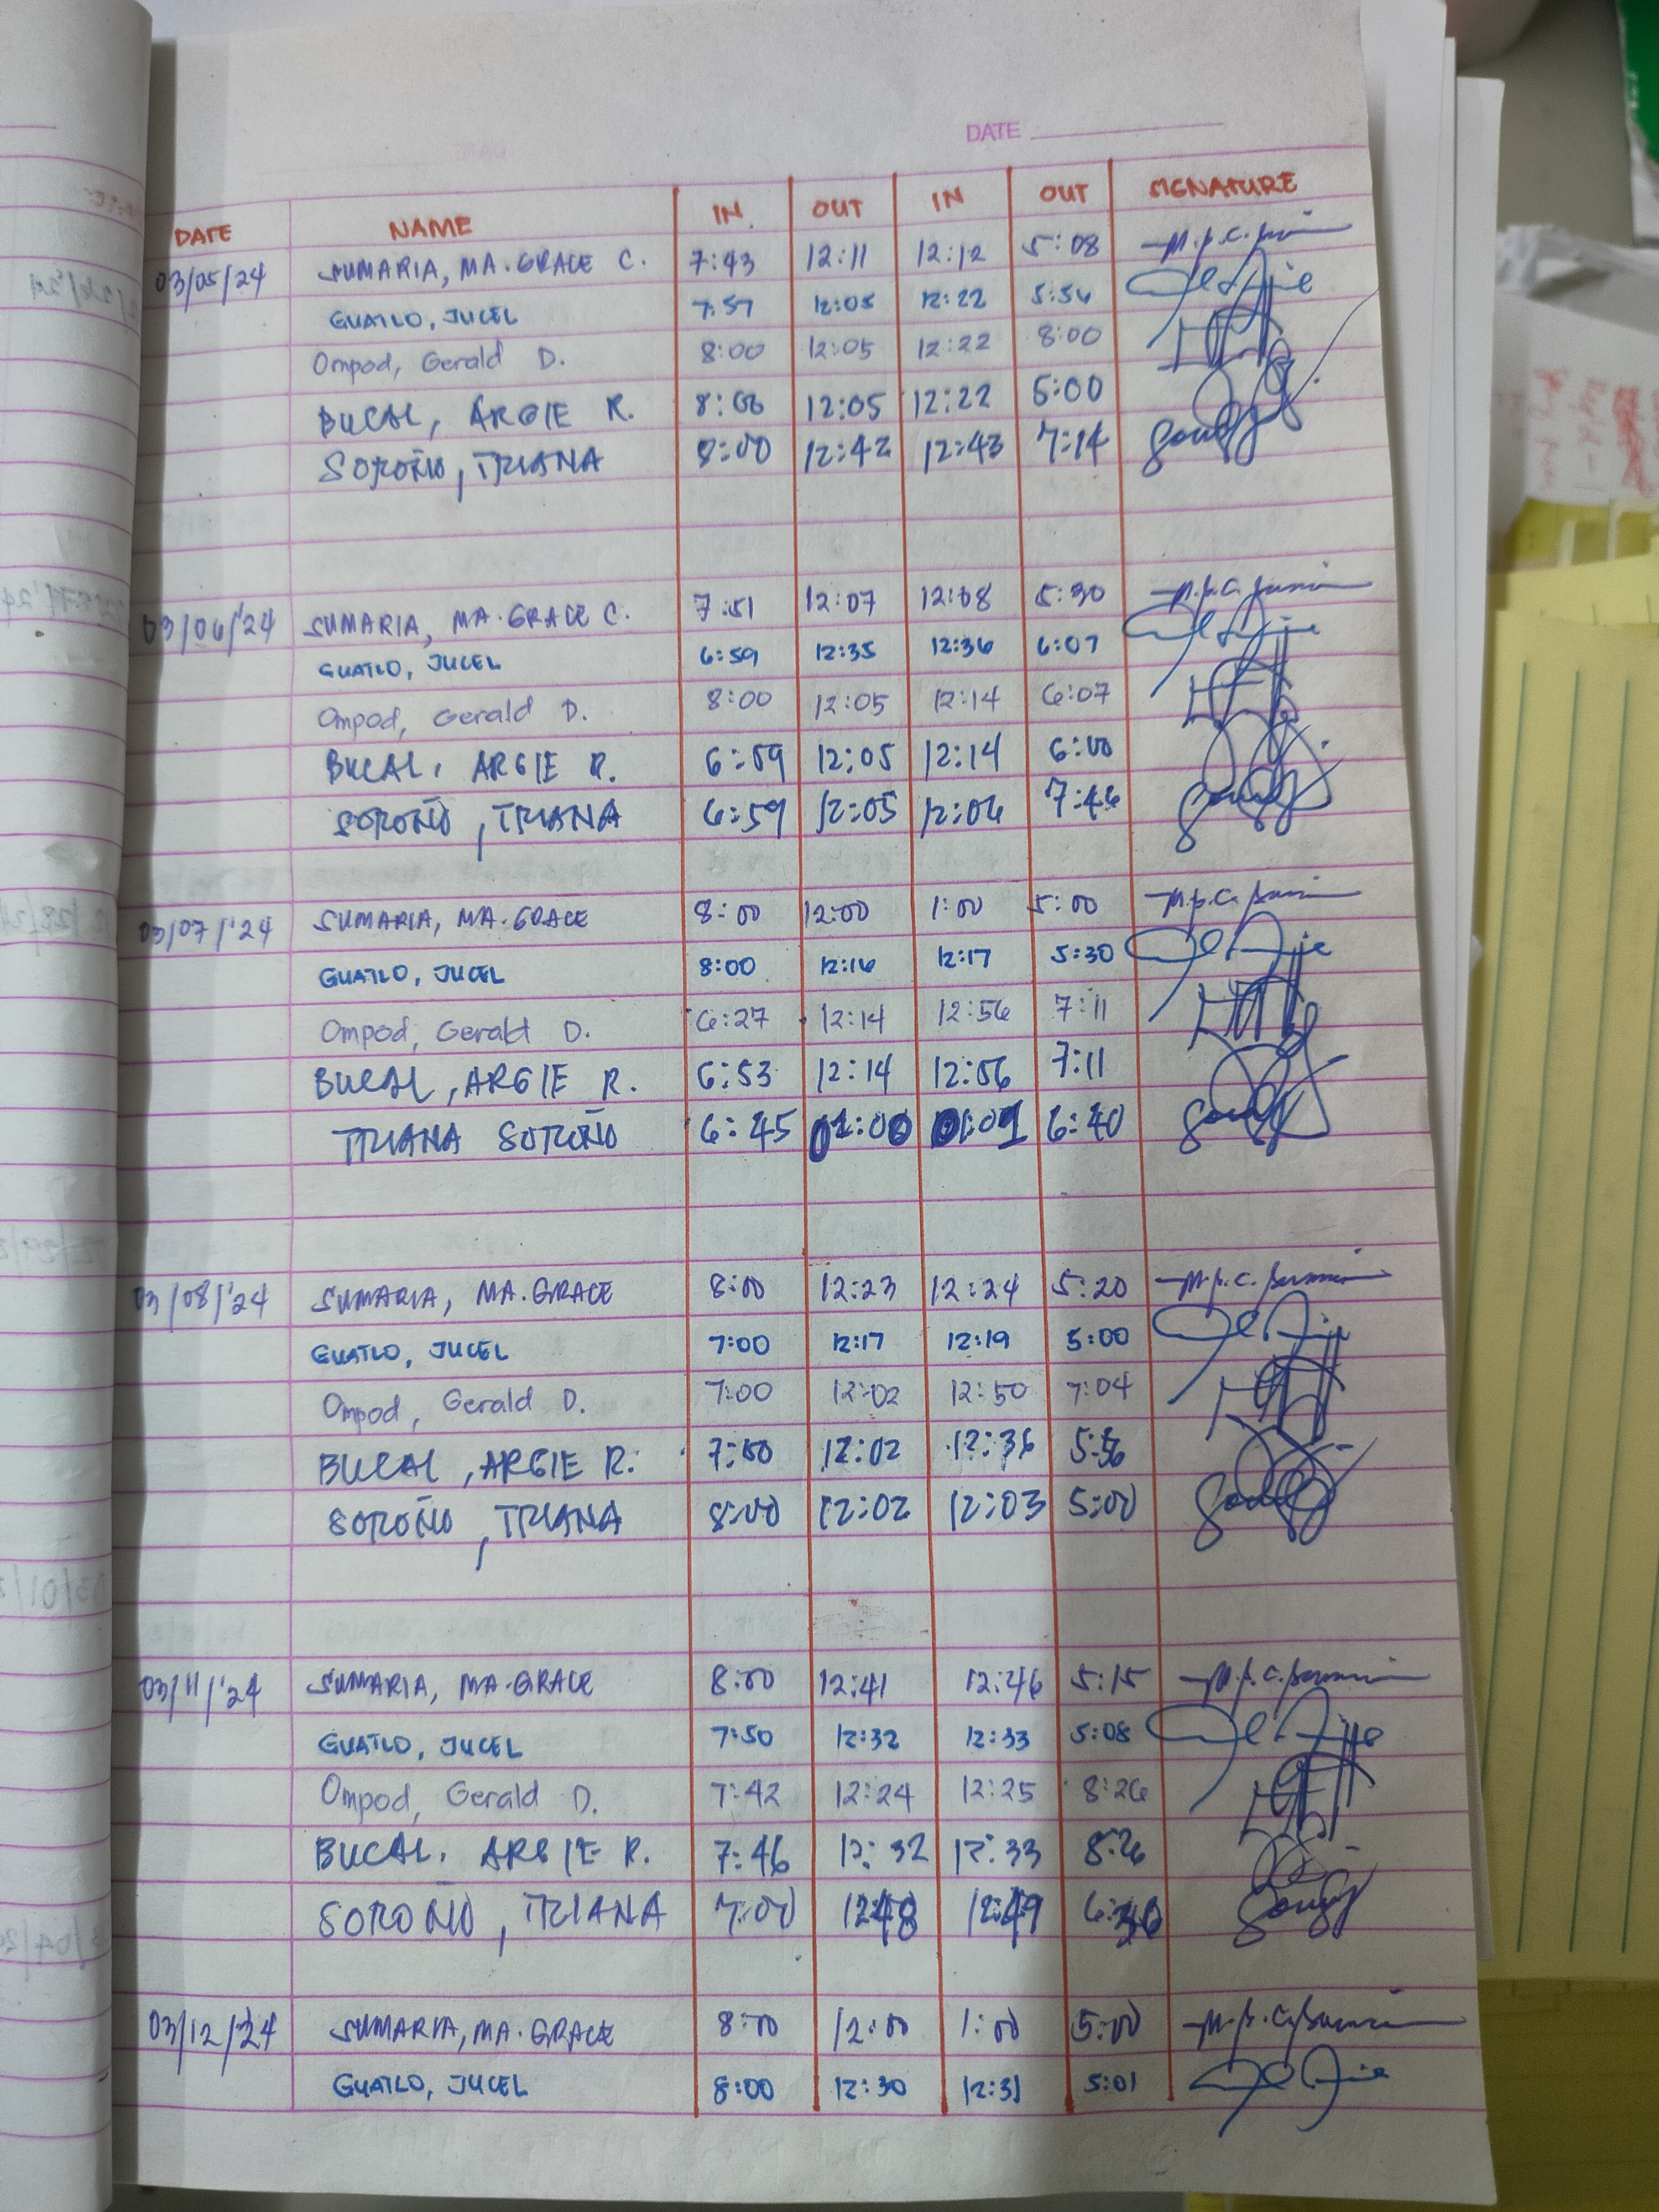 DATE
DATE NAME IN OUT IN OUT SIGNATURE
03/05/24 SUMARIA, MA. GRACE C. 7:43 12:11 12:12 5:08
GUATLO, JUCEL 7:57 12:05 12:22 5:56
Ompod, Gerald D. 8:00 12:05 12:22 8:00
BUCAL, ARGIE R. 8:00 12:05 12:22 5:00
SOROÑO, TRIANA 8:00 12:42 12:43 7:14
03/06/'24 SUMARIA, MA. GRACE C. 7:51 12:07 12:08 5:30
GUATLO, JUCEL 6:59 12:35 12:36 6:07
Ompod, Gerald D. 8:00 12:05 12:14 6:07
BUCAL, ARGIE R. 6:59 12:05 12:14 6:00
SOROÑO, TRIANA 6:59 12:05 12:06 7:46
03/07/'24 SUMARIA, MA. GRACE 8:00 12:00 1:00 5:00
GUATLO, JUCEL 8:00 12:16 12:17 5:30
Ompod, Gerald D. 6:27 12:14 12:56 7:11
BUCAL, ARGIE R. 6:53 12:14 12:56 7:11
TRIANA SOROÑO 6:45 01:00 01:01 6:40
03/08/'24 SUMARIA, MA. GRACE 8:00 12:23 12:24 5:20
GUATLO, JUCEL 7:00 12:17 12:19 5:00
Ompod, Gerald D. 7:00 12:02 12:50 7:04
BUCAL, ARGIE R. 7:50 12:02 12:36
SOROÑO, TRIANA 8:00 12:02 12:03 5:00
03/11/'24 SUMARIA, MA. GRACE 8:00 12:41 12:46 5:15
GUATLO, JUCEL 7:50 12:32 12:33 5:08
Ompod, Gerald D. 7:42 12:24 12:25 8:26
BUCAL, ARGIE R. 7:46 12:32 12:33 8:26
SOROÑO, TRIANA 7:00 12:48 12:49
03/12/24 SUMARIA, MA. GRACE 8:00 12:00 1:00 5:00
GUATLO, JUCEL 8:00 12:30 12:31 5:01